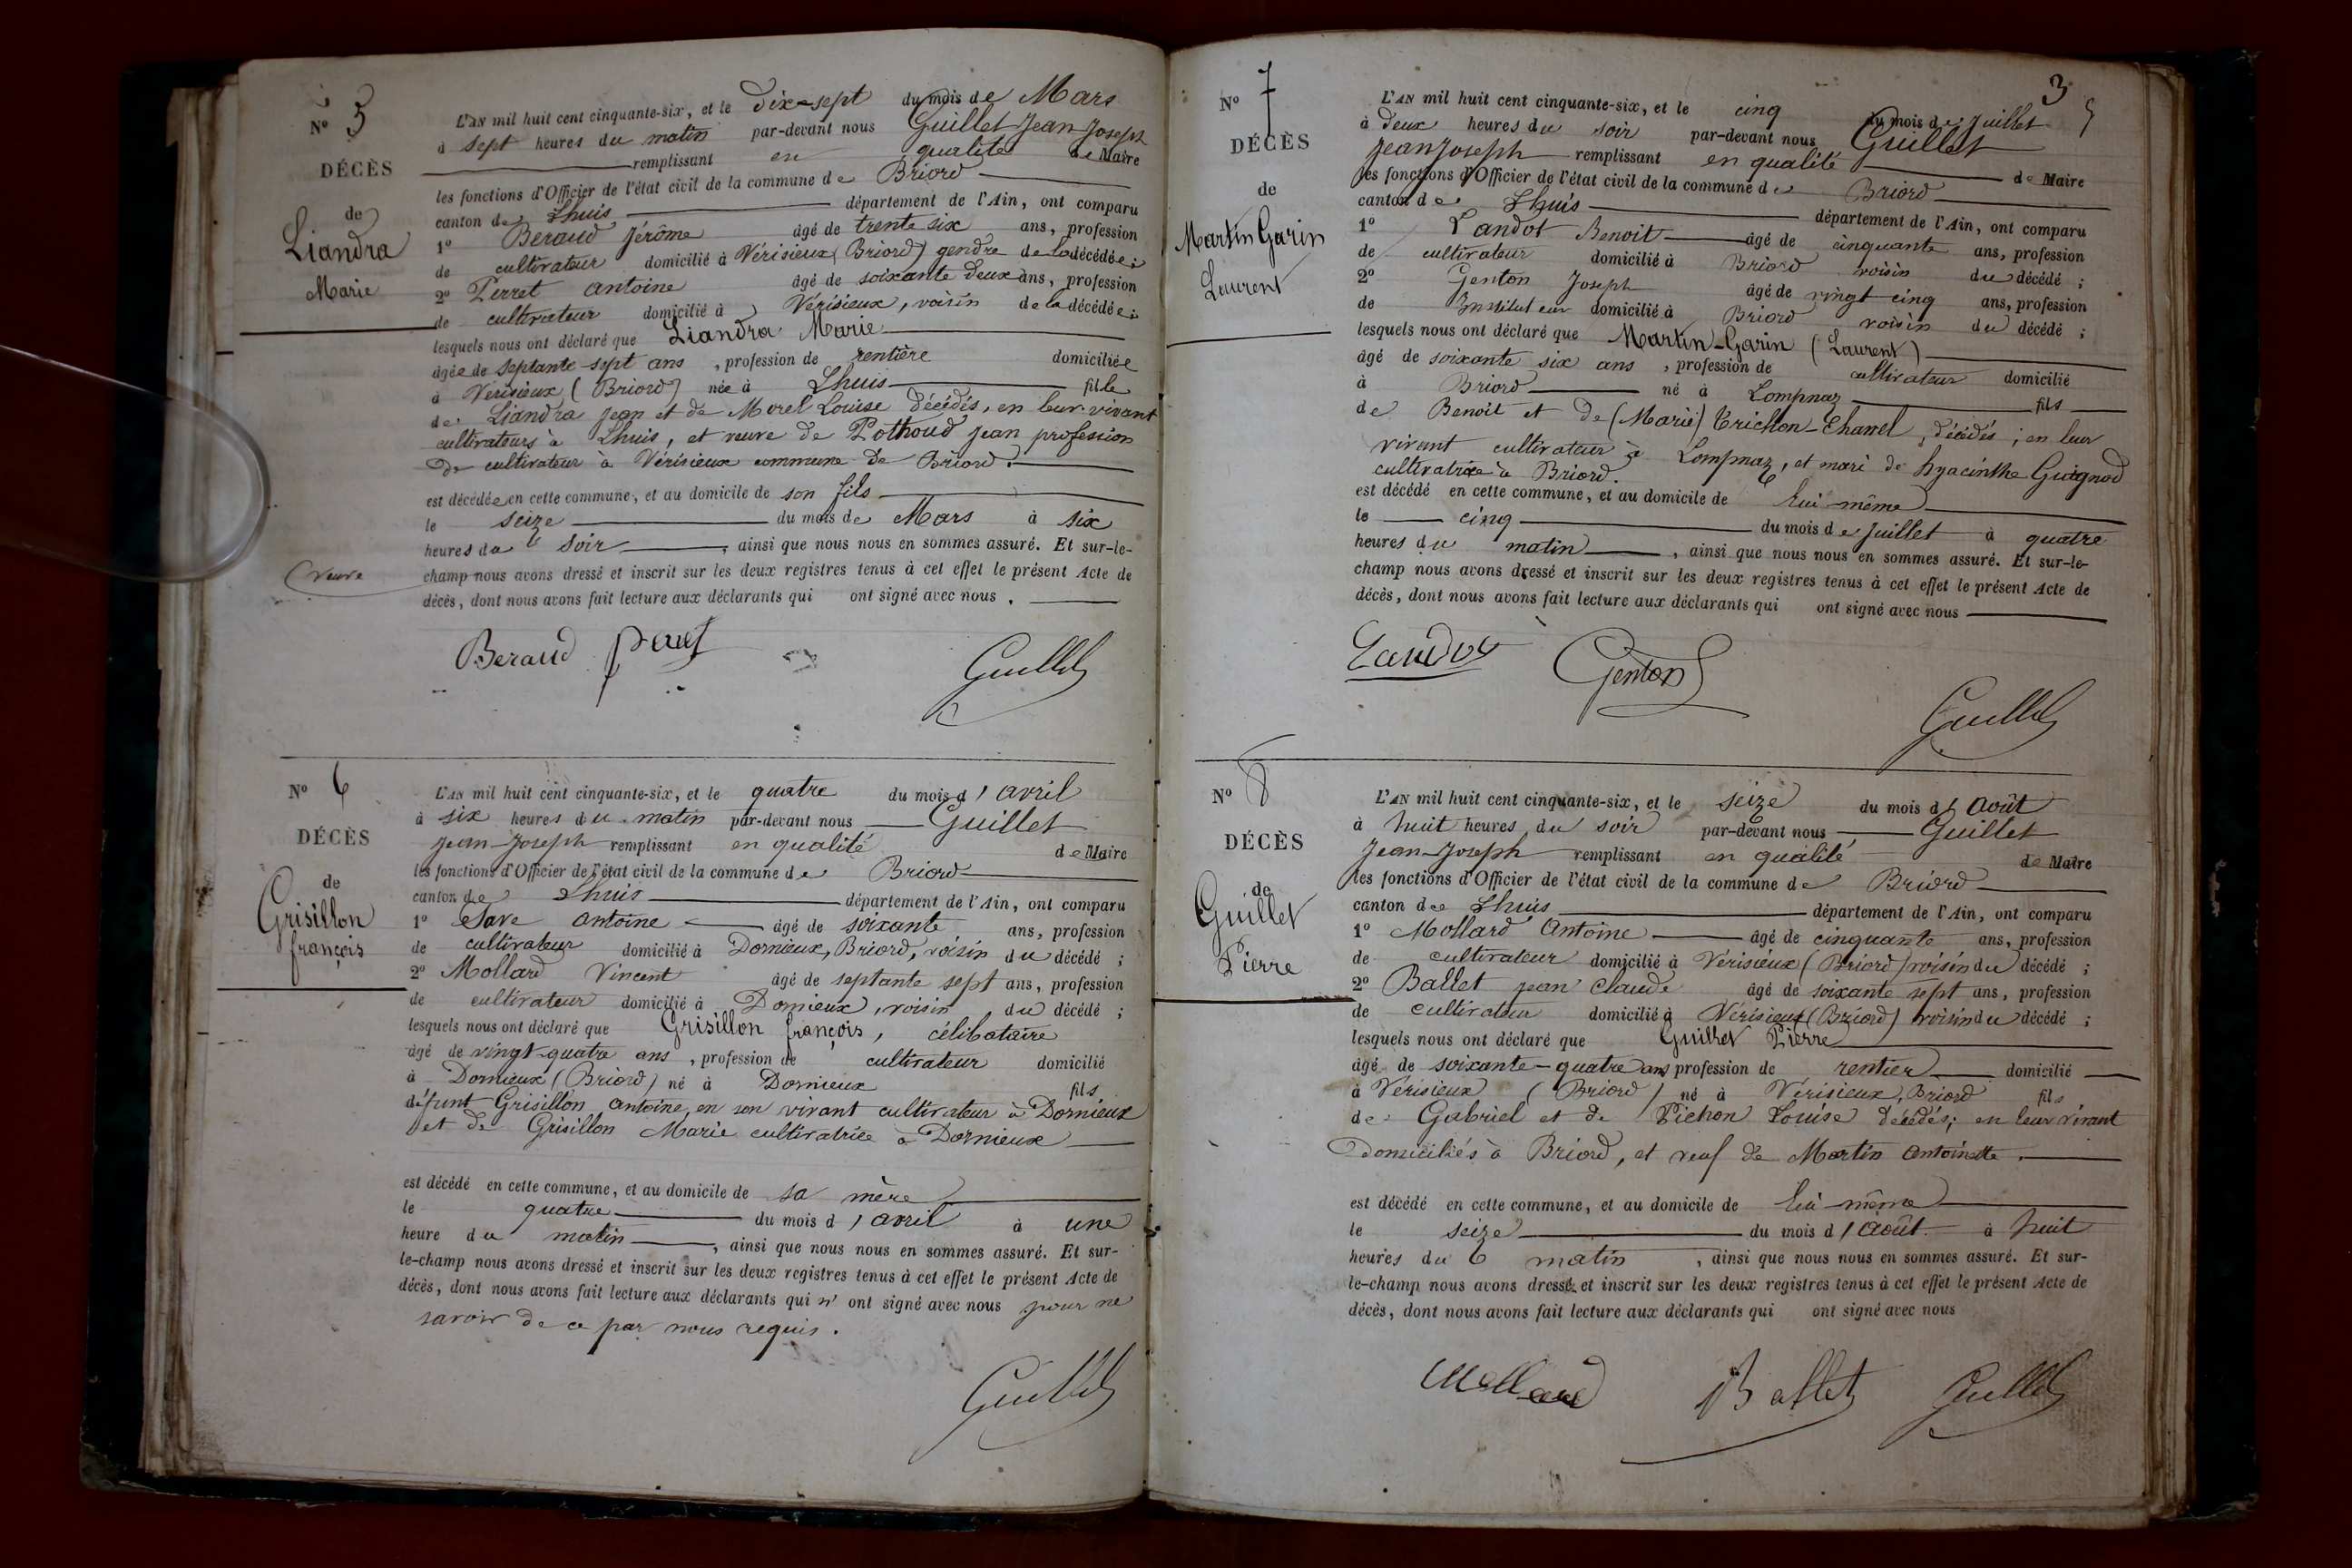 N° 5
DÉCÈS
de
Liandra
Marie
veuve
L'AN mil huit cent cinquante-six, et le dix-sept du mois de Mars
à sept heures du matin par-devant nous Guillet Jean Joseph
remplissant en qualité de Maire
les fonctions d'Officier de l'état civil de la commune de Briord
canton de Lhuis département de l'Ain, ont comparu
1° Beraud Jérôme âgé de trente six ans, profession
de cultivateur domicilié à Vérisieux (Briord) gendre de la décédée ;
2° Perret Antoine âgé de soixante deux ans, profession
de cultivateur domicilié à Vérisieux, voisin de la décédée ;
lesquels nous ont déclaré que Liandra Marie
âgée de septante-sept ans, profession de rentière domiciliée
à Verisieux (Briord) née à Lhuis fille
de Liandra Jean et de Morel Louise décédés, en leur vivant
cultivateurs à Lhuis, et veuve de Pothoud Jean profession
de cultivateur à Vérisieux commune de Briord.
est décédée en cette commune, et au domicile de son fils
le seize du mois de Mars à six
heures du soir, ainsi que nous nous en sommes assuré. Et sur-le-
champ nous avons dressé et inscrit sur les deux registres tenus à cet effet le présent Acte de
décès, dont nous avons fait lecture aux déclarants qui ont signé avec nous.
Beraud Guillet
N° 6
DÉCÈS
de
Grisillon
françois
L'AN mil huit cent cinquante-six, et le quatre du mois d'avril
à six heures du matin par-devant nous Guillet
Jean-Joseph remplissant en qualité de Maire
les fonctions d'Officier de l'état civil de la commune de Briord
canton de Lhuis département de l'Ain, ont comparu
1° Save Antoine âgé de soixante ans, profession
de cultivateur domicilié à Dornieux, Briord, voisin du décédé ;
2° Mollard Vincent âgé de septante sept ans, profession
de cultivateur domicilié à Dornieux, voisin du décédé ;
lesquels nous ont déclaré que Grisillon françois, célibataire
âgé de vingt-quatre ans, profession de cultivateur domicilié
à Dornieux (Briord) né à Dornieux fils
défunt Grisillon Antoine, en son vivant cultivateur à Dornieux
et de Grisillon Marie cultivatrice à Dornieux
est décédé en cette commune, et au domicile de sa mère
le quatre du mois d'avril à une
heure du matin, ainsi que nous nous en sommes assuré. Et sur-
le-champ nous avons dressé et inscrit sur les deux registres tenus à cet effet le présent Acte de
décès, dont nous avons fait lecture aux déclarants qui n'ont signé avec nous pour ne
savoir de ce par nous requis.
Guillet
3
N° 7
DÉCÈS
de
Martin Garin
Laurent
L'AN mil huit cent cinquante-six, et le cinq du mois de Juillet
à deux heures du soir par-devant nous Guillet
Jean Joseph remplissant en qualité de Maire
les fonctions d'Officier de l'état civil de la commune de Briord
canton de Lhuis département de l'Ain, ont comparu
1° Landot Benoit âgé de cinquante ans, profession
de cultivateur domicilié à Briord voisin du décédé ;
2° Genton Joseph âgé de vingt cinq ans, profession
de Instituteur domicilié à Briord voisin du décédé ;
lesquels nous ont déclaré que Martin-Garin (Laurent)
âgé de soixante six ans, profession de cultivateur domicilié
à Briord né à Lompnaz fils
de Benoit et de (Marie) Trichon-Chanel, décédés ; en leur
vivant cultivateur à Lompnaz, et mari de hyacinthe Guignod
cultivatrice à Briord.
est décédé en cette commune, et au domicile de lui-même
le cinq du mois de Juillet à quatre
heures du matin, ainsi que nous nous en sommes assuré. Et sur-le-
champ nous avons dressé et inscrit sur les deux registres tenus à cet effet le présent Acte de
décès, dont nous avons fait lecture aux déclarants qui ont signé avec nous
Landot Genton
Guillet
N° 8
DÉCÈS
de
Guillet
Pierre
L'AN mil huit cent cinquante-six, et le seize du mois d'Août
à huit heures du soir par-devant nous Guillet
Jean-Joseph remplissant en qualité de Maire
les fonctions d'Officier de l'état civil de la commune de Briord
canton de Lhuis département de l'Ain, ont comparu
1° Mollard Antoine âgé de cinquante ans, profession
de cultivateur domicilié à Vérisieux (Briord) voisin du décédé ;
2° Ballet Jean Claude âgé de soixante sept ans, profession
de cultivateur domicilié à Vérisieux (Briord) voisin du décédé ;
lesquels nous ont déclaré que Guillet Pierre
âgé de soixante-quatre ans profession de rentier domicilié
à Vérisieux (Briord) né à Vérisieux, Briord fils
de Gabriel et de Pichon Louise décédés ; en leur vivant
domiciliés à Briord, et veuf de Martin Antoinette.
est décédé en cette commune, et au domicile de lui-même
le seize du mois d'Août à huit
heures du matin, ainsi que nous nous en sommes assuré. Et sur-
le-champ nous avons dressé et inscrit sur les deux registres tenus à cet effet le présent Acte de
décès, dont nous avons fait lecture aux déclarants qui ont signé avec nous
Mollard Ballet Guillet